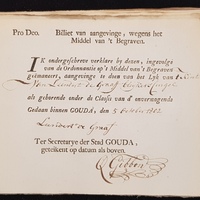 Pro Deo. Billiet van aangevinge, wegens het
Middel van 't Begraven.
IK ondergeschreve verklare by dezen, ingevolge
van de Ordonnantie op 't Middel van 't Begraven
geëmaneert, aangevinge te doen van het Lyk van
Leendert de Graaf
als gehorende onder de Classis van d'onvermogende
Gedaan binnen GOUDA, den 5 October
Leendert de Graaf
Ter Secretarye der Stad GOUDA,
geteikent op datum als boven.